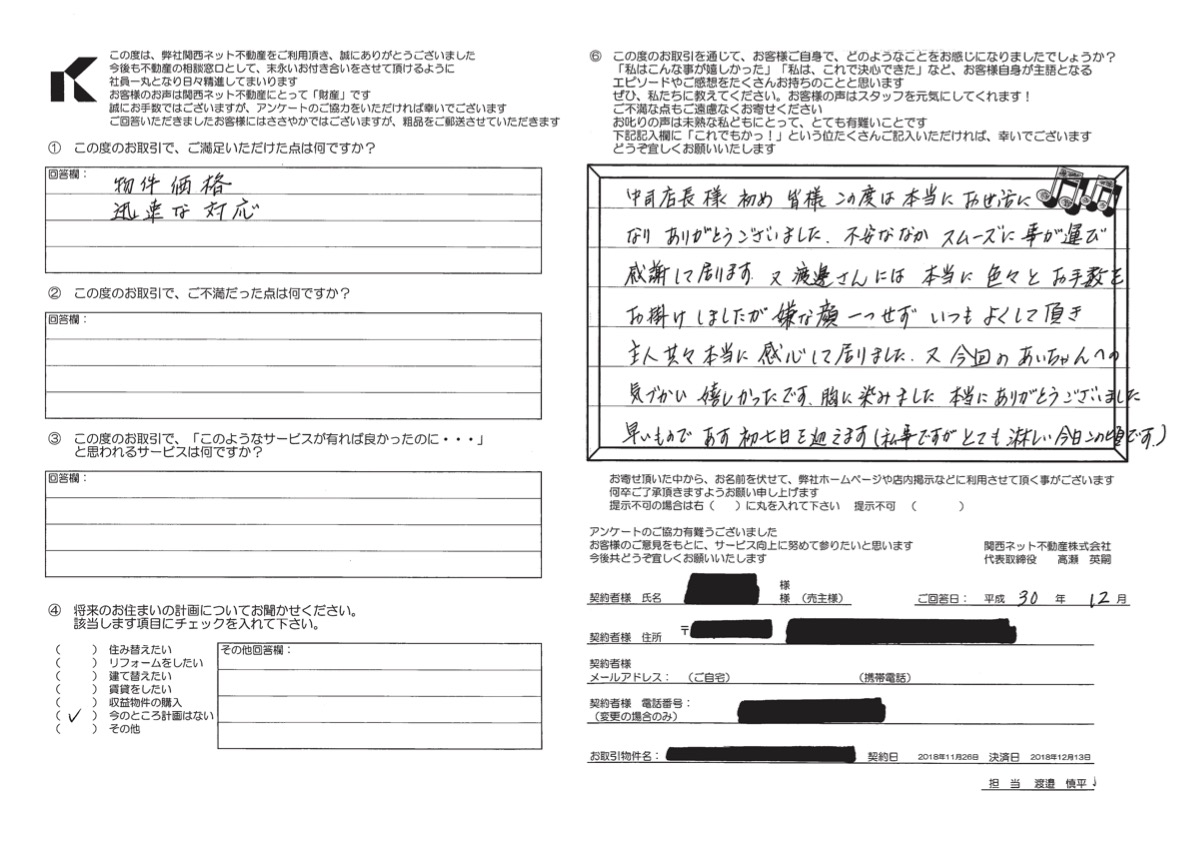 この度は、弊社関西ネット不動産をご利用頂き、誠にありがとうございました
今後も不動産の相談窓口として、末永いお付き合いをさせて頂けるように
社員一丸となり日々精進してまいります
お客様のお声は関西ネット不動産にとって「財産」です
誠にお手数ではございますが、アンケートのご協力をいただければ幸いでございます
ご回答いただきましたお客様にはささやかではございますが、粗品をご郵送させていただきます
① この度のお取引で、ご満足いただけた点は何ですか？
回答欄：
物件価格
迅速な対応
② この度のお取引で、ご不満だった点は何ですか？
回答欄：
③ この度のお取引で、「このようなサービスが有れば良かったのに・・・」
と思われるサービスは何ですか？
回答欄：
④ 将来のお住まいの計画についてお聞かせください。
該当します項目にチェックを入れて下さい。
（　　） 住み替えたい
（　　） リフォームをしたい
（　　）建て替えたい
（　　） 賃貸をしたい
（　　） 収益物件の購入
（ ✓ ） 今のところ計画はない
（　　） その他
その他回答欄：
⑥ この度のお取引を通じて、お客様ご自身で、どのようなことをお感じになりましたでしょうか？
「私はこんな事が嬉しかった」「私は、これで決心できた」など、お客様自身が主語となる
エピソードやご感想をたくさんお持ちのことと思います
ぜひ、私たちに教えてください。お客様の声はスタッフを元気にしてくれます！
ご不満な点もご遠慮なくお寄せください
お叱りの声は未熟な私どもにとって、とても有難いことです
下記記入欄に「これでもかっ！」という位たくさんご記入いただければ、幸いでございます
どうぞ宜しくお願いいたします
中司店長様 初め 皆様 この度は本当に お世話に
なり ありがとうございました。不安ななか スムーズに 事が運び
感謝して居ります。又 渡邉さんには 本当に 色々と お手数を
お掛けしましたが 嫌な顔一つせず いつも よくして頂き
主人共々本当に 感心して居りました。又 今回の あいちゃんへの
気づかい 嬉しかったです。胸に染みました 本当に ありがとうございました
早いもので あす 初七日を迎えます(私事ですが とても 淋しい今日この頃です。)
お寄せ頂いた中から、お名前を伏せて、弊社ホームページや店内掲示などに利用させて頂く事がございます
何卒ご了承頂きますようお願い申し上げます
提示不可の場合は右（　　）に丸を入れて下さい 提示不可 （　　）
アンケートのご協力有難うございました
お客様のご意見をもとに、サービス向上に努めて参りたいと思います
今後共どうぞ宜しくお願いいたします
関西ネット不動産株式会社
代表取締役 高瀬 英嗣
契約者様 氏名 様
様 （売主様） ご回答日： 平成 30 年 12 月
契約者様 住所 〒
契約者様
メールアドレス： （ご自宅） （携帯電話）
契約者様 電話番号：
（変更の場合のみ）
お取引物件名： 契約日 2018年11月26日 決済日 2018年12月13日
担 当 渡邉 慎平